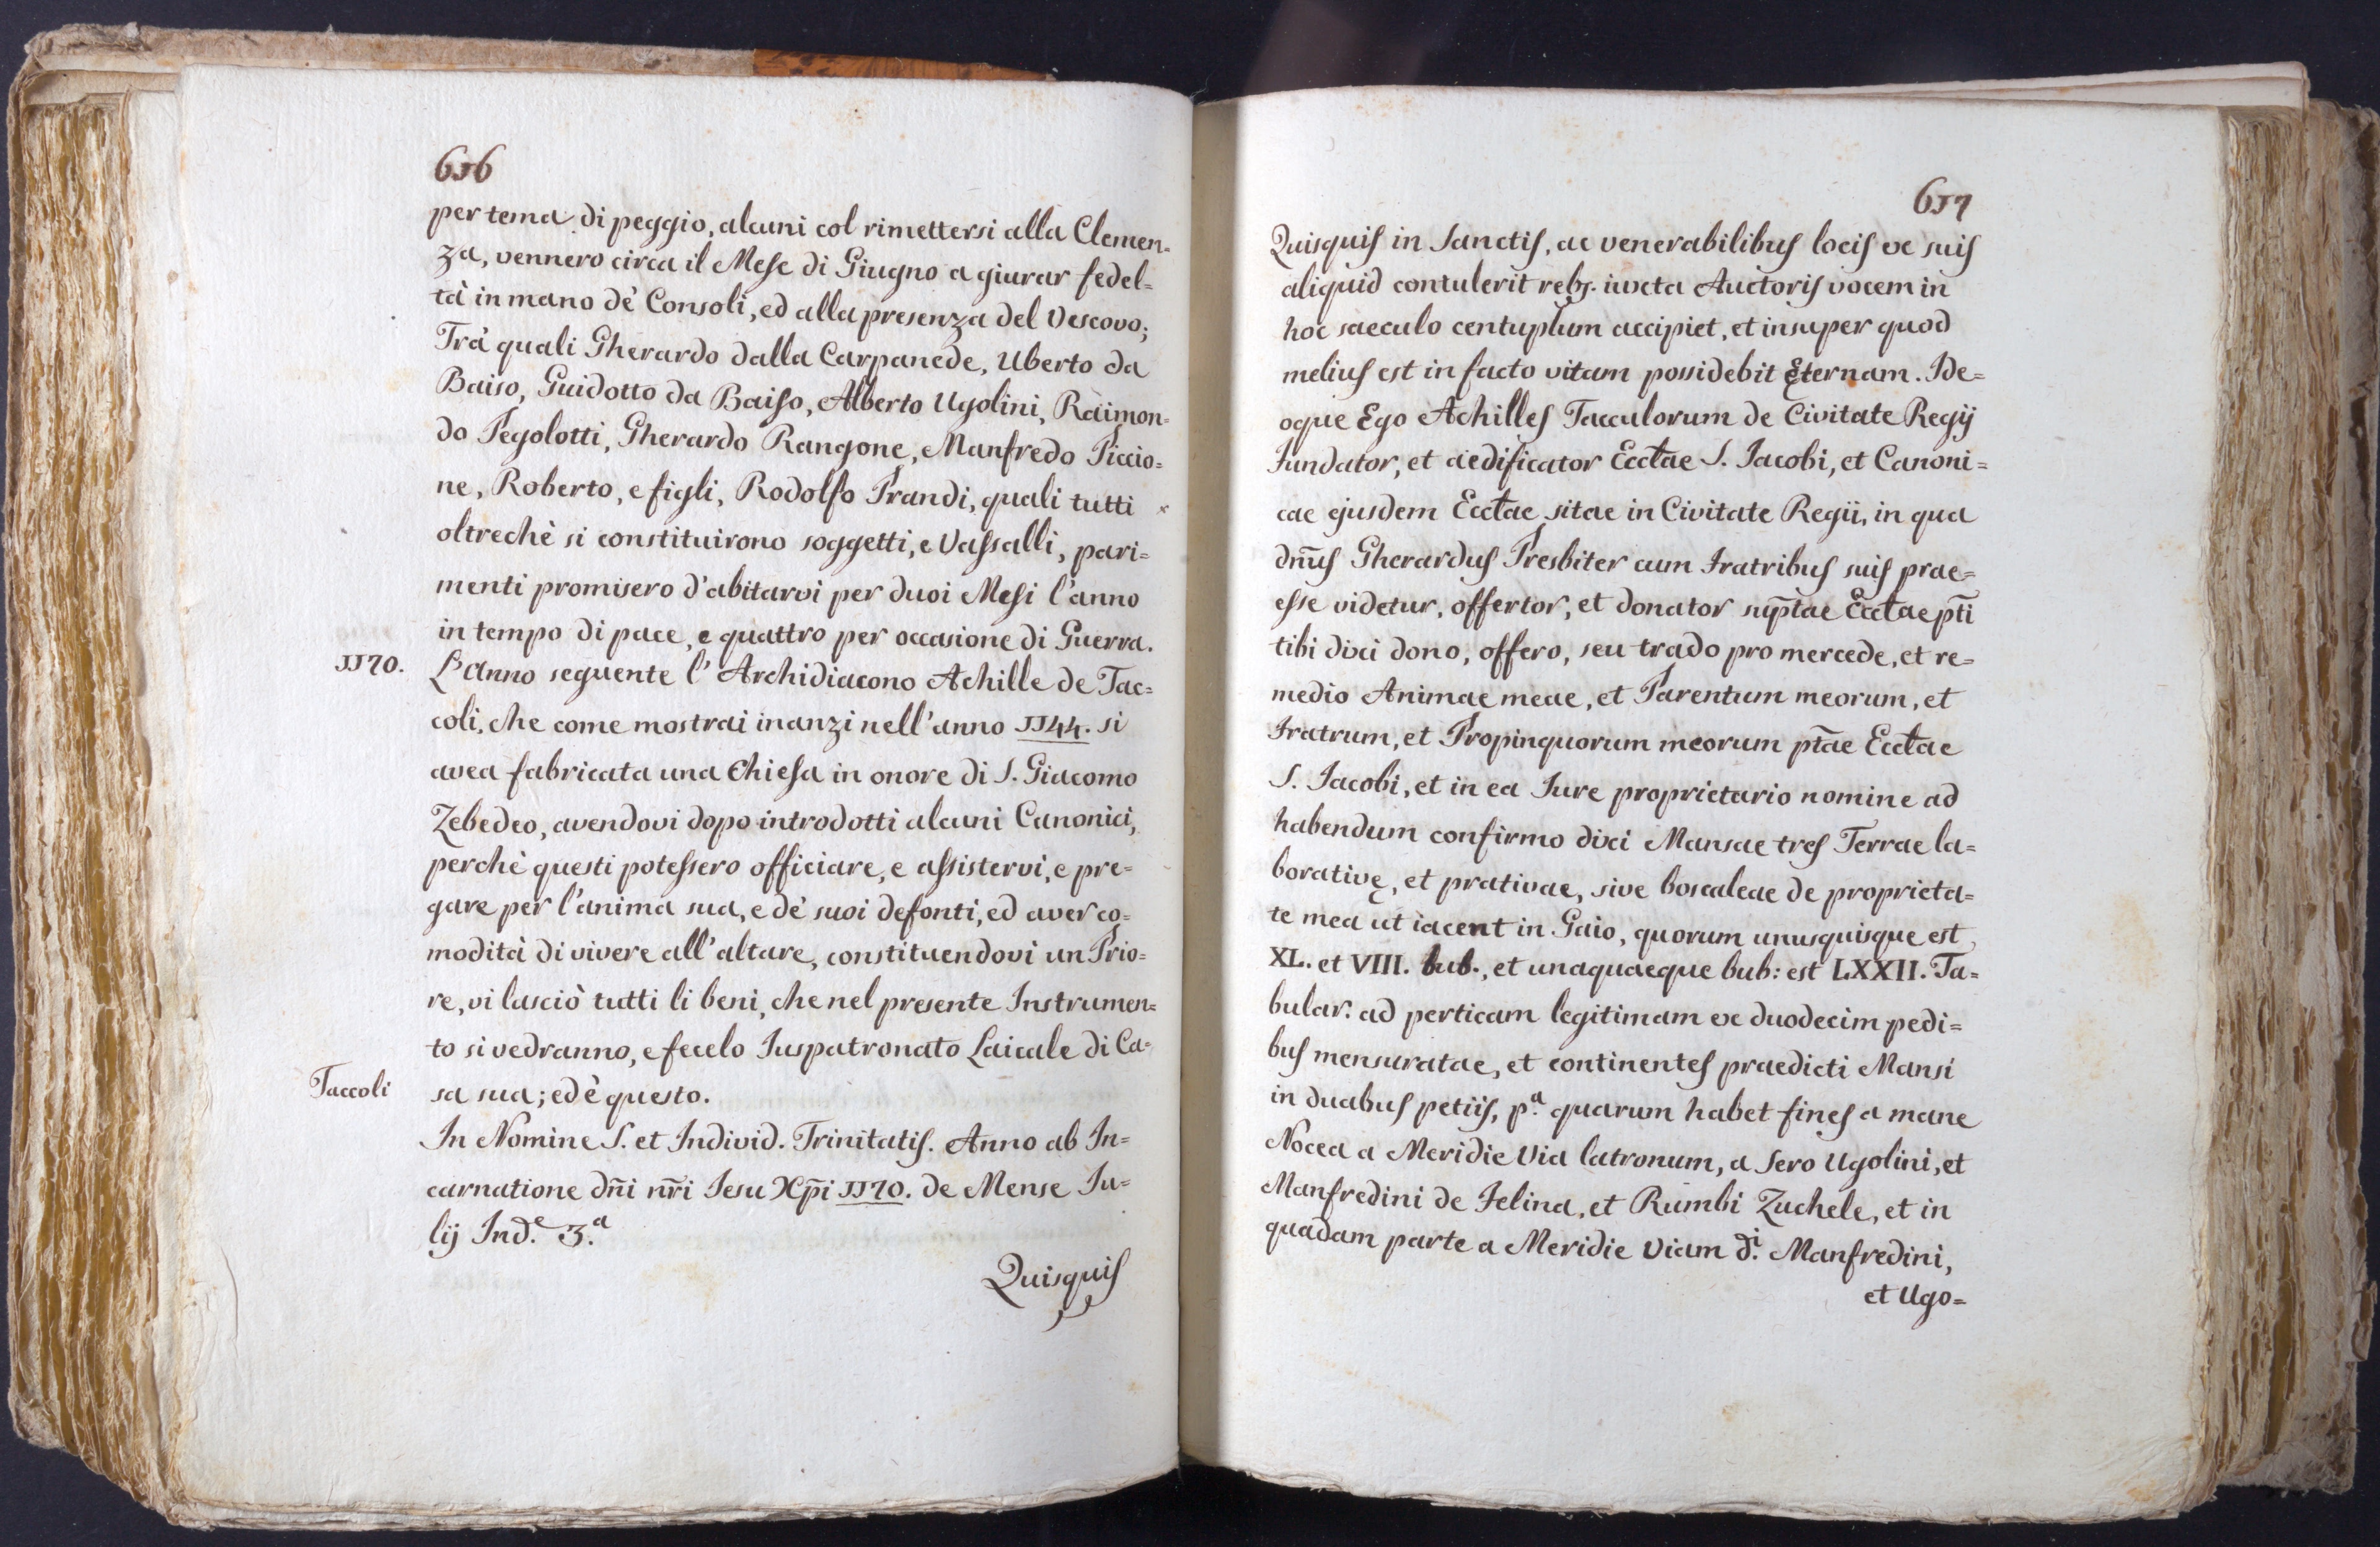 616
per tema di peggio, alcuni col rimettersi alla Clemen=
za, vennero circa il Mese di Giugno a giurar fedel=
tà in mano de' Consoli, ed alla presenza del Vescovo;
Trà quali Gherardo dalla Carpanede, Uberto da
Baiso, Guidotto da Baiso, Alberto Ugolini, Raimon=
do Pegolotti, Gherardo Rangone, Manfredo Piccio=
ne, Roberto, e figli, Rodolfo Prandi, quali tutti
oltrechè si constituirono soggetti, e Vassalli, pari=
menti promisero d'abitarvi per duoi Mesi l'anno
in tempo di pace, e quattro per occasione di Guerra.
1170. L'Anno seguente l'Archidiacono Achille de Tac=
coli, che come mostrai inanzi nell'anno 1144. si
avea fabricata una Chiesa in onore di S. Giacomo
Zebedeo, avendovi dopo introdotti alcuni Canonici,
perchè questi potessero officiare, e assistervi, e pre=
gare per l'anima sua, e de' suoi defonti, ed aver co=
modità di vivere all'altare, constituendovi un Prio=
re, vi lasciò tutti li beni, che nel presente Instrumen=
to si vedranno, e fecelo Iuspatronato Laicale di Ca=
Taccoli sa sua; ed è questo.
In Nomine S. et Individ. Trinitatis. Anno ab In=
carnatione dñi nr̃i Iesu Xp̃i 1170. de Mense Iu=
lij Ind.e 3.a
Quisquis
617
Quisquis in Sanctis, ac venerabilibus locis ex suis
aliquid contulerit rebȝ. iuxta Auctoris vocem in
hoc saeculo centuplum accipiet, et insuper quod
melius est in facto vitam possidebit Eternam. Ide=
oque Ego Achilles Tacculorum de Civitate Regij
Fundator, et aedificator Ecctae S. Iacobi, et Canoni=
cae ejusdem Ecctae sitae in Civitate Regii, in qua
dnūs Gherardus Presbiter cum Fratribus suis prae=
esse videtur, offertor, et donator sup̃tae Ecctae pt̃i
tibi dixi dono, offero, seu trado pro mercede, et re=
medio Animae meae, et Parentum meorum, et
Fratrum, et Propinquorum meorum pt̃ae Ecctae
S. Iacobi, et in ea Iure proprietario nomine ad
habendum confirmo dixi Mansae tres Terrae la=
borativę, et prativae, sive boscaleae de proprieta=
te mea ut iacent in Gaio, quorum unusquisque est
XL. et VIII. bub., et unaquaeque bub: est LXXII. Ta=
bular: ad perticam legitimam ex duodecim pedi=
bus mensuratae, et continentes praedicti Mansi
in duabus petiis, p.a quarum habet fines a mane
Nocea a Meridie Via latronum, a Sero Ugolini, et
Manfredini de Felina, et Rumbi Zuchele, et in
quadam parte a Meridie Viam d.i Manfredini,
et Ugo=